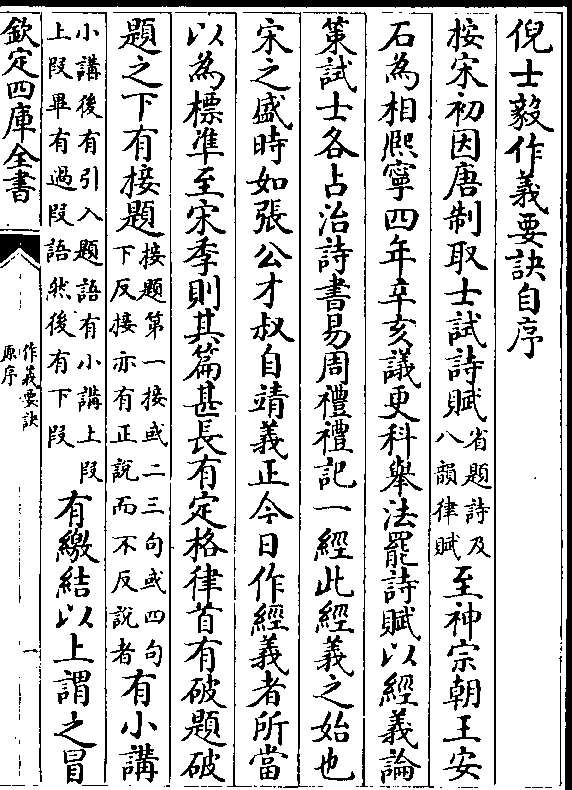 倪士毅作義要訣自序
按宋初因唐制取士試詩賦省題詩及八韻律賦至神宗朝王安
石為相熈寧四年辛亥議更科舉法罷詩賦以經義論
策試士各占治詩書易周禮禮記一經此經義之始也
宋之盛時如張公才叔自靖義正今日作經義者所當
以為標準至宋季則其篇甚長有定格律首有破題破
題之下有接題接題第一接或二三句或四句下反接亦有正說而不反說者有小講
小講後有引入題語有小講上段上段畢有過段語然後有下段有繳結以上謂之冒
欽定四庫全書
作義要訣
原序
一